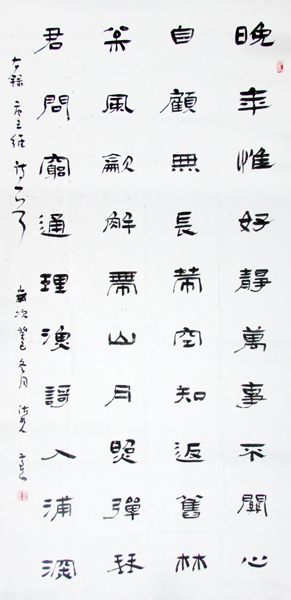 晚年惟好靜萬事不關心
自顧無長策空知返舊林
枀風龡解帶山月照彈琴
君問窮通理漁謌入浦深
右錄唐王維詩一首 歲次癸巳冬月